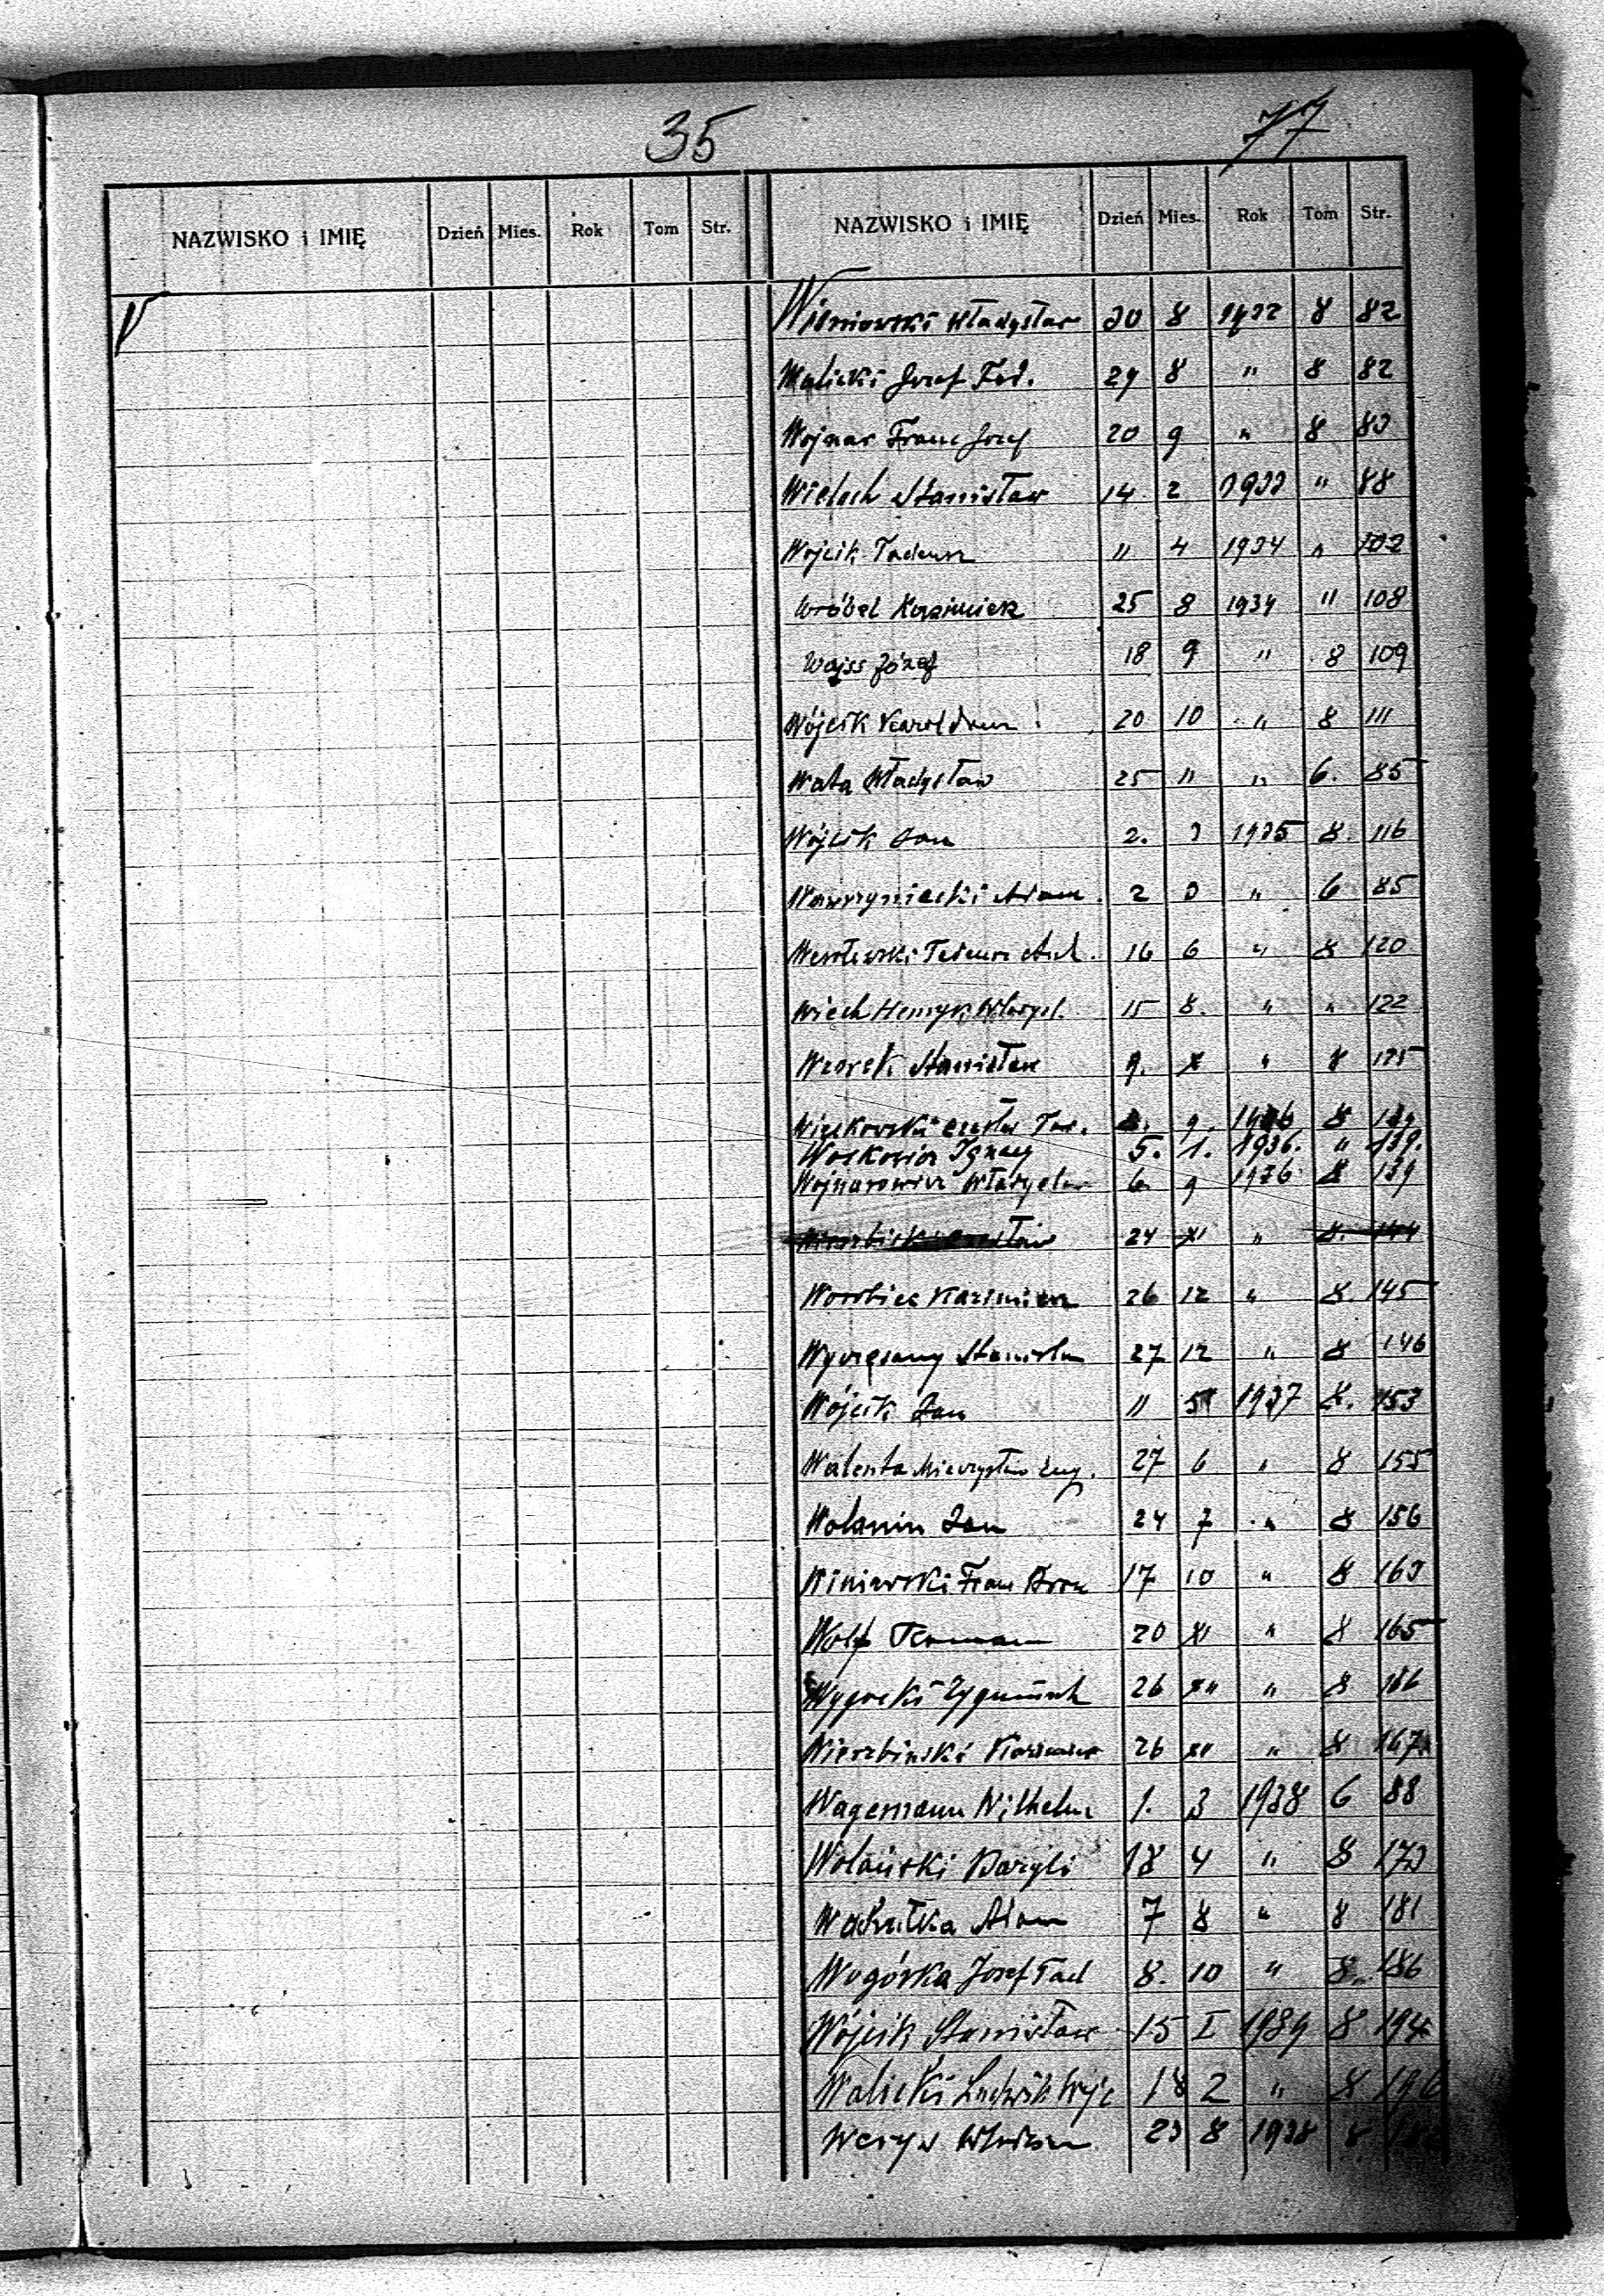 35
77
NAZWISKO i IMIĘ Dzień Mies. Rok Tom Str.
NAZWISKO i IMIĘ Dzień Mies. Rok Tom Str.
V
Wiśniowski Władysław 30 8 1932 8 82
Walicki Józef Tad. 29 8 " 8 82
Wojnar Franc Józef 20 9 " 8 83
Wieloch Stanisław 14 2 1933 " 88
Wójcik Tadeusz 11 4 1934 " 102
Wróbel Kazimierz 25 8 1934 " 108
Wajss Józef 18 9 " 8 109
Wójcik Karol 20 10 " 8 111
Wata Władysław 25 " " 6. 85
Wójcik Jan 2. 3 1935 8. 116
Wawrzyniecki Adam 2 3 " 6 85
Tadeusz 16 6 " 8 120
Wiech Henryk 15 8. " " 122
Stanisław 9. X " 8 125
Więckowski Czesław Tad. 9. 8
Ignacy 5. 1. 1936. " 139.
Wojnarowicz Władysław 6 9 1936 8 139
24 XI " 8. 144
Kazimierz 26 12 " 8. 145
Wyczesany Stanisław 27 12 " 8 146
Wójcik Jan 11 5 1937 8. 153
Walenta Mieczysław Eug. 27 6 " 8 155
Wolanin Jan 24 7 " 8 156
Winiarski Fran Bron 17 10 " 8 163
Wolf 20 XI " 8 165
Wysocki Zygmunt 26 XII " 8 166
Wierzbiński Kazimierz 26 XII " 8 167
Wagemann Wilhelm 1. 3 1938 6 88
Wolański Bazyli 18 4 " 8 173
Adam 7 8 " 8 181
Wogórka Józef Tad 8. 10 " 8. 186
Wójcik Stanisław 15 I 1939 8 194
Walicki Ludwik Wojc 18 2 " 8 196
23 8 1938 8